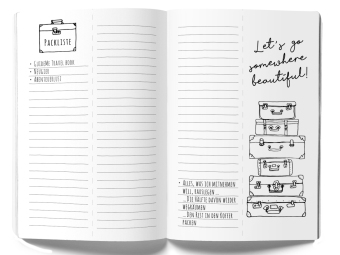 Packliste
• Luckime Travel Book
• Neugier
• Abenteuerlust
• Alles, was ich mitnehmen
will, rauflegen ...
...Die Hälfte davon wieder
wegräumen
...Den Rest in den Koffer
packen
Let's go
somewhere
beautiful!